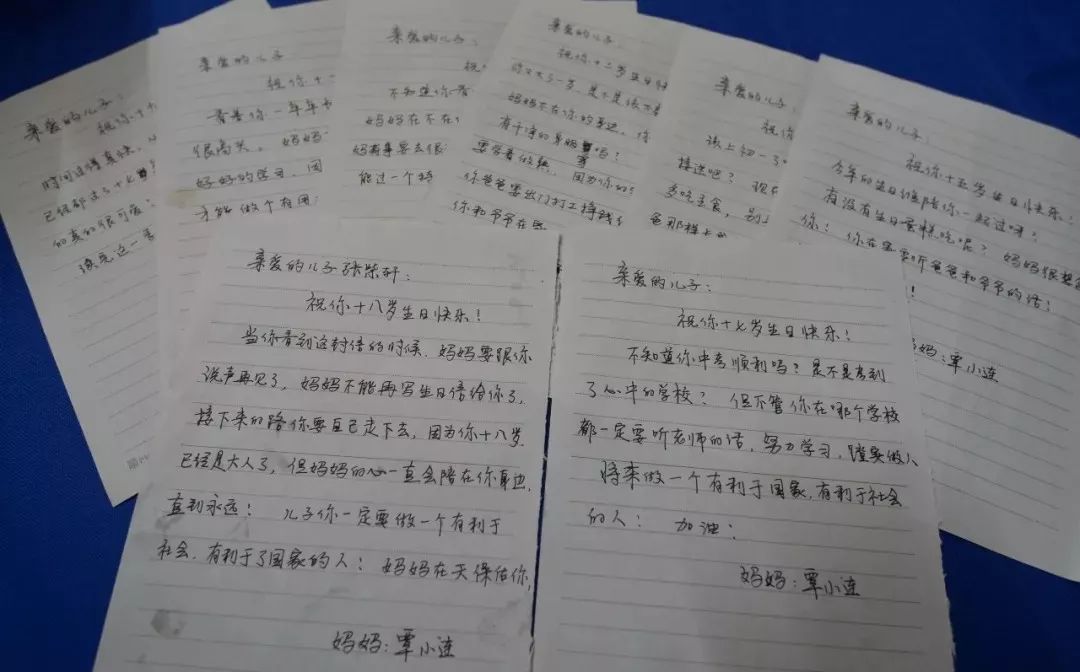 亲爱的儿子：
时间过得真快，
已经都过了十七
的真的很可爱
亲爱的儿子
祝你十
看着你一年年
很高兴。妈妈
好好的学习，因
才能做个有用
亲爱的儿子：
祝
不知道你看
妈妈在不在
妈妈有事要去很
能过一个特
亲爱的儿子：
祝你十二岁生日快
你又大了一岁，是不是该不
妈妈不在你的身边，
有干净的身服穿吗？
要学着做熟，因为你的
你爸爸要出门打工挣钱
你和爷爷在
亲爱的儿子：
祝你
该上初一了
接送吧？现在
多吃主食，别
爸那样
亲爱的儿子：
祝你十五岁生日快乐！
今年的生日谁陪你一起过呀？
有没有生日蛋糕吃呢？妈妈很想
你！你在家要听爸爸和爷爷的话！
妈妈：覃小连
亲爱的儿子张柴轩：
祝你十八岁生日快乐！
当你看到这封信的时候，妈妈要跟你
说声再见了，妈妈不能再写生日信给你了，
接下来的路你要自己走下去，因为你十八岁
已经是大人了，但妈妈的心一直会陪在你身边，
直到永远！儿子你一定要做一个有利于
社会，有利于了国家的人！妈妈在天保佑你，
妈妈：覃小连
亲爱的儿子：
祝你十七岁生日快乐！
不知道你中考顺利吗？是不是考到
了心中的学校？但不管你在哪个学校
都一定要听老师的话，努力学习，踏实做人
将来做一个有利于国家，有利于社会
的人！加油！
妈妈：覃小连